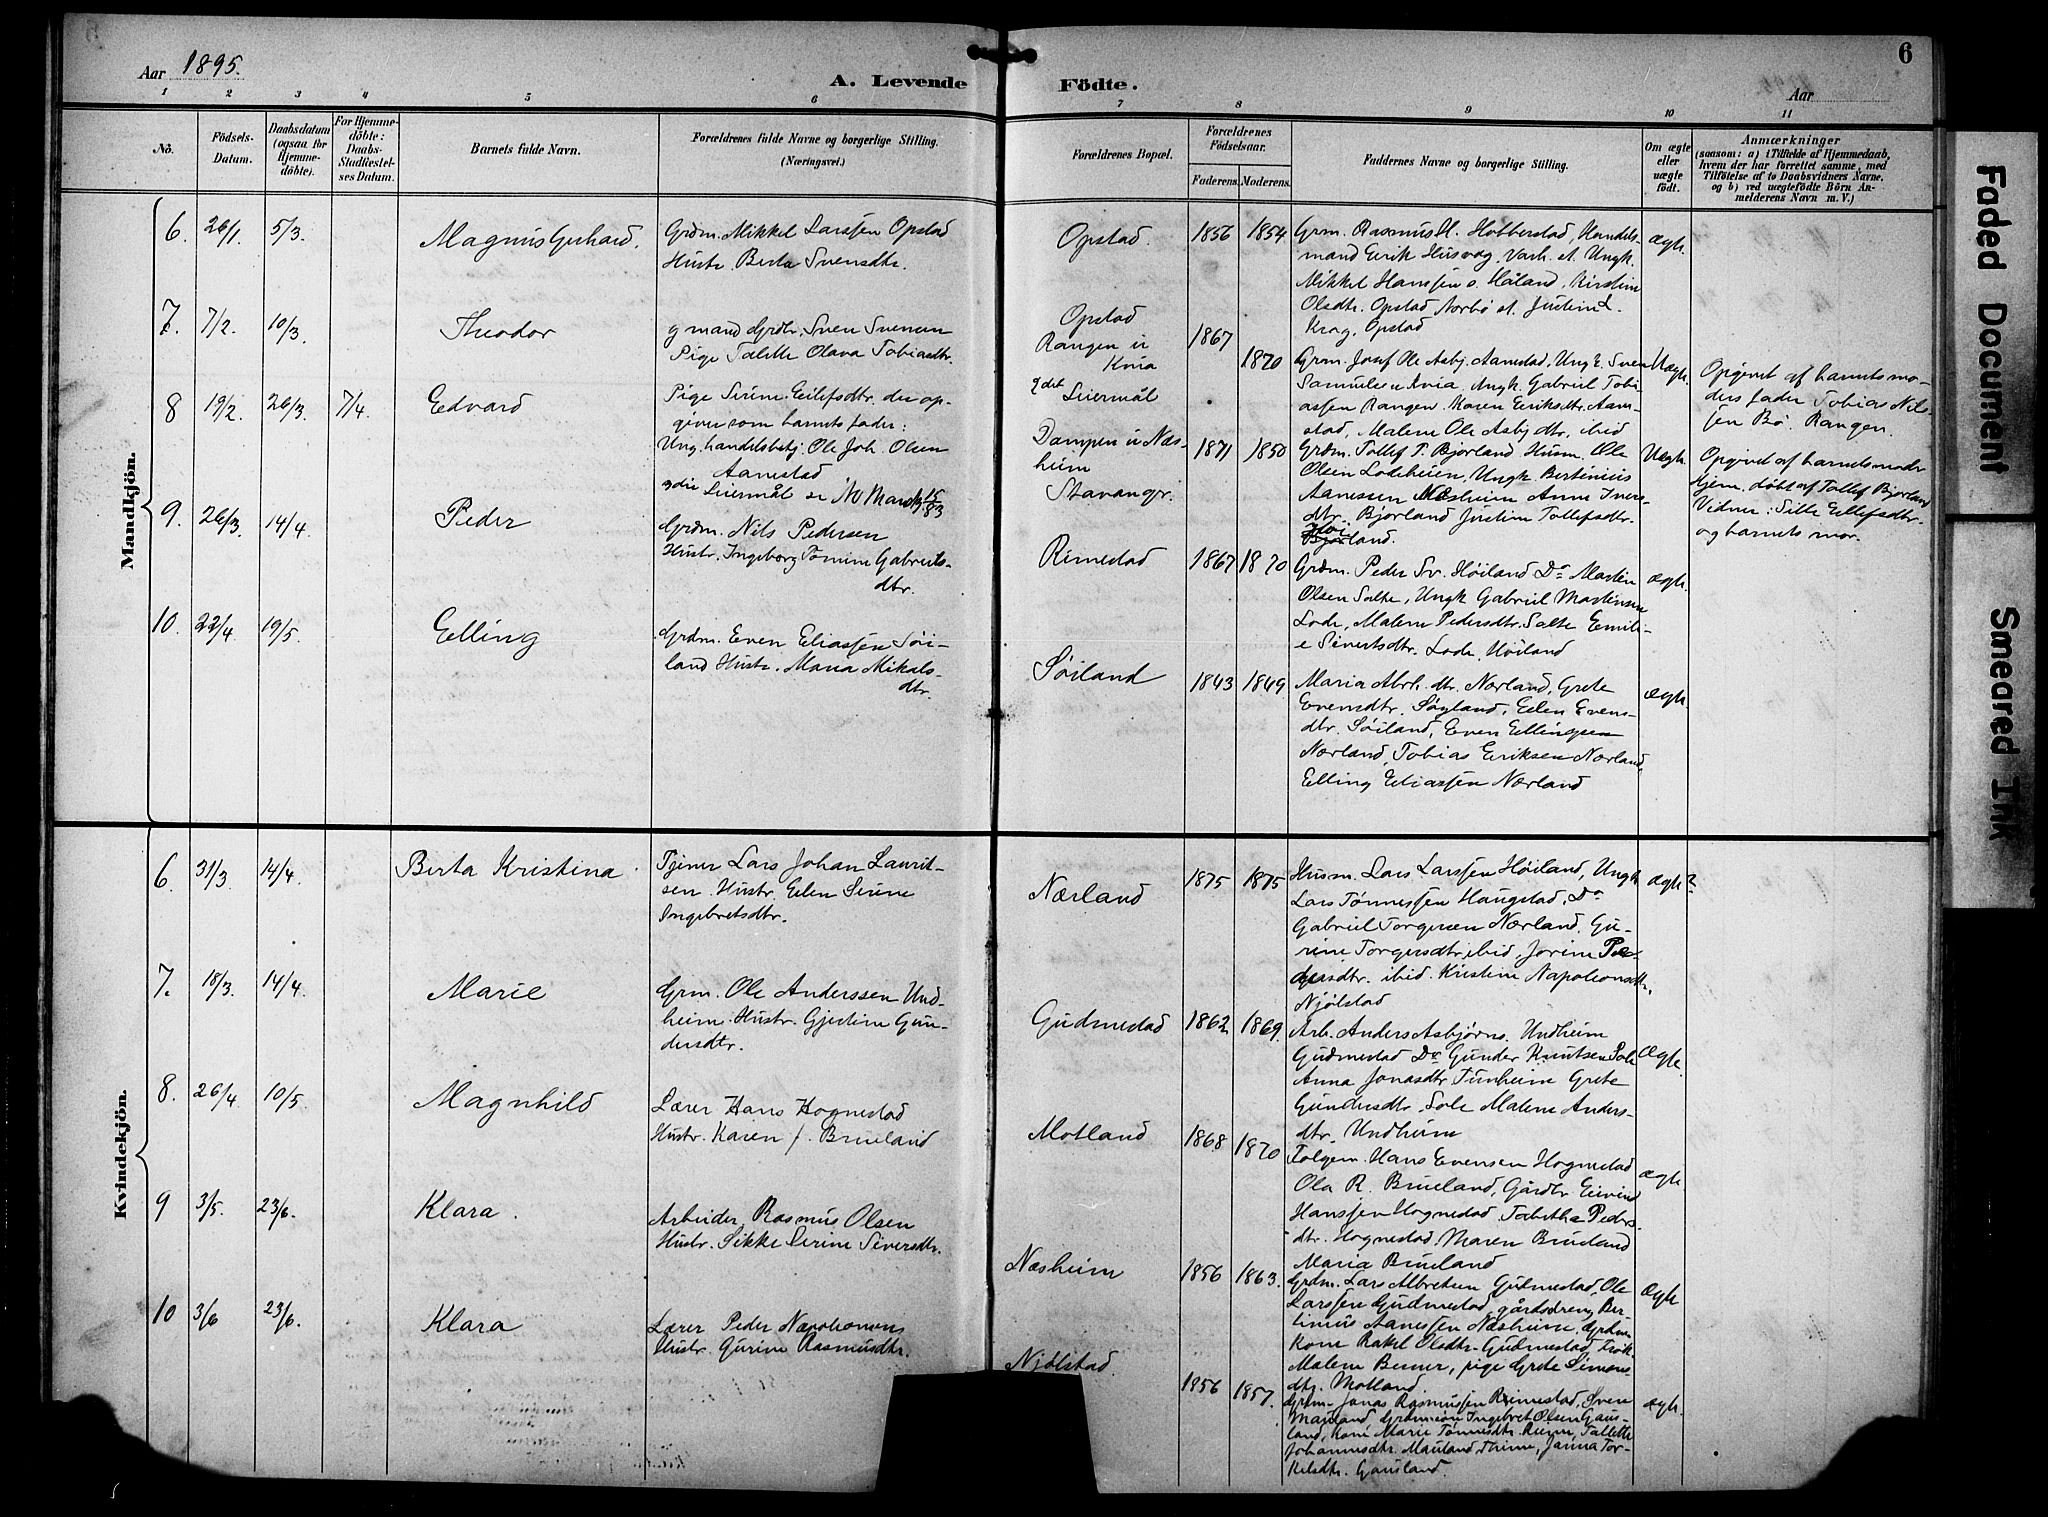 Aar 1895.
A. Levende Födte.
6
Aar
1 2 3 4 5 6 7 8 9 10 11
No.
Födsels-Datum.
Daabsdatum (ogsaa for Hjemme-döbte).
For Hjemme-döbte: Daabs-Stadfæstel-ses Datum.
Barnets fulde Navn.
Forældrenes fulde Navne og borgerlige Stilling. (Næringsvei.)
Forældrenes Bopæl.
Forældrenes Födselsaar.
Faderens. Moderens.
Faddernes Navne og borgerlige Stilling.
Om ægte eller uægte födt.
Anmærkninger
(saasom: a) i Tilfælde af Hjemmedaab, hvem der har forrettet samme, med Tilföielse af to Daabsvidners Navne. og b) ved uægtefödte Börn An-melderens Navn m. V.)
Mandkjön.
6. 26/1 5/3. Magnus Gerhard.
Grdm. Mikkel Larssen Opstad
Hustr. Berta Svensdtr.
Opstad. 1856 1854
Grm. Rasmus H. Hobberstad, Handels-
mand Eerik Husvag, Varh. st. Ungk.
Mikkel Hanssen s. Håland, Kirstine
Olsdtr. Opstad Norbø st. Justine L.
Krag, Opstad
ægte.
7. 7/2. 10/3. Theodor
gmand Grdbr. Sven Svensen
Pige Talette Olava Tobiasdtr.
Opstad
Rangen u
Kvia
1867 1870
Grm. Josef Ole Asbj. Aanestad, Ungk. Sven
Samuelsen Kvia, Ungk. Gabriel Tobi-
assen Rangen. Maren Eeriksdtr. Aane-
stad, Malene Ole Asbjdtr. ibid
Uægte.
Opgivet af barnets mo-
ders fader Tobias Nils-
sen Bø. Rangen.
8 19/2. 26/3. 7/4. Eedvard
Pige Serine Eilefsdtr. der op-
giver som barnets fader:
Ung. handelsbetj. Ole Joh. Olsen
Aanestad
2det Leiermål
Dampen u Næs-
heim
Stavanger.
1871 1850
Grdm. Tollef T. Bjorland Husm. Ole
Olsen Lodeheien, Ungk. Bertinius
Aanessen Næsheim Anne Ivers-
dtr. Bjorland Justine Tollefsdtr.
Uægte.
Opgivet af barnets moder
hjem. døbt af Tollef Bjorland
Vidner: Sille Eilefsdtr.
og barnets mor.
9. 26/3. 14/4. Peder
Grdm. Nils Pedersen
Hustr. Ingeborg Tomine Gabriels-
dtr.
Rimestad 1867 1870
Grdm. Peder Sv. Høiland Do Martin
Olsen Salte, Ungk Gabriel Martinsen
Lode, Malene Pedersdtr. Salte Eemili-
e Sivertsdtr. Lode, Høiland
ægte.
10. 22/4. 19/5. Eelling
Grdm. Even Eliassen Søi-
land Hustr. Maria Mikals-
dtr.
Søiland 1843 1849
Maria Abrh. dtr. Nærland, Grete
Evensdtr. Søyland, Eelen Evens-
dtr. Søiland, Even Eellingsen
Nærland, Tobias Eeriksen Nærland,
Elling Eeliassen Nærland
ægte.
Kvindekjön.
6. 31/3 14/4. Berta Kristina.
Tjener Lars Johan Laurit-
sen. Hustr. Eelen Serine
Ingebretsdtr.
Nærland 1875 1875
Husm. Lars Larssen Høiland, Ungk
Lars Tønnessen Haugstad, Do
Gabriel Torgersen Nærland, Gu-
rine Torgersdtr. ibid. Jorine Pe-
dersdtr. ibid. Kristine Napoleonsdtr.
Njølstad
ægte?
7. 18/3. 14/4. Marie
Grm. Ole Anderssen Und-
heim. Hustr. Gjertine Gun-
dersdtr.
Gudmestad 1862 1869.
Arb. Anders Asbjørns. Undheim
Gudmestad Do Gunder Knutsen Sole
Anna Jonasdtr Tunheim Grete
Gundersdtr. Sole Malene Anders-
dtr. Undheim
ægte.
8. 26/4. 10/5. Magnhild
Lærer Hans Hognestad
Hustr. Karen f. Brueland
Motland 1868 1870
Folgem. Hans Evensen Hognestad
Ola R. Brueland, Gårdbr. Eivind
Hanssen Hognestad Tabitha Peders-
dtr. Hognestad Maren Brueland
Maria Brueland
ægte.
9 3/5. 23/6. Klara.
Arbeider Rasmus Olsen
Hustr. Sikke Serine Siversdtr.
Næsheim 1856 1863.
Grdm. Lars Albretsen Gudmestad, Ole
Larssen Gudmestad gårdsdreng Ber-
tinius Aanessen Næsheim. Grdm.
Kone Rakel Olsdtr. Gudmestad, Frøk.
Malene Berner, pige Grete Simons-
dtr. Motland.
ægte
10 3/6 23/6. Klara
Lærer Peder Napoleonsen
Hustr. Gurine Rasmusdtr.
Njølstad. 1856 1857.
Grdm. Jonas Rasmussen Rimestad, Sven
Mauland, Grdmsøn Ingebret Olsen Gaus-
land, Kone Marie Tønnesdtr. Rime, Tallette
Johannesdtr. Mauland, Thime, Janna Tor-
kelsdtr. Gausland.
ægte.
Faded Document
Smeared Ink